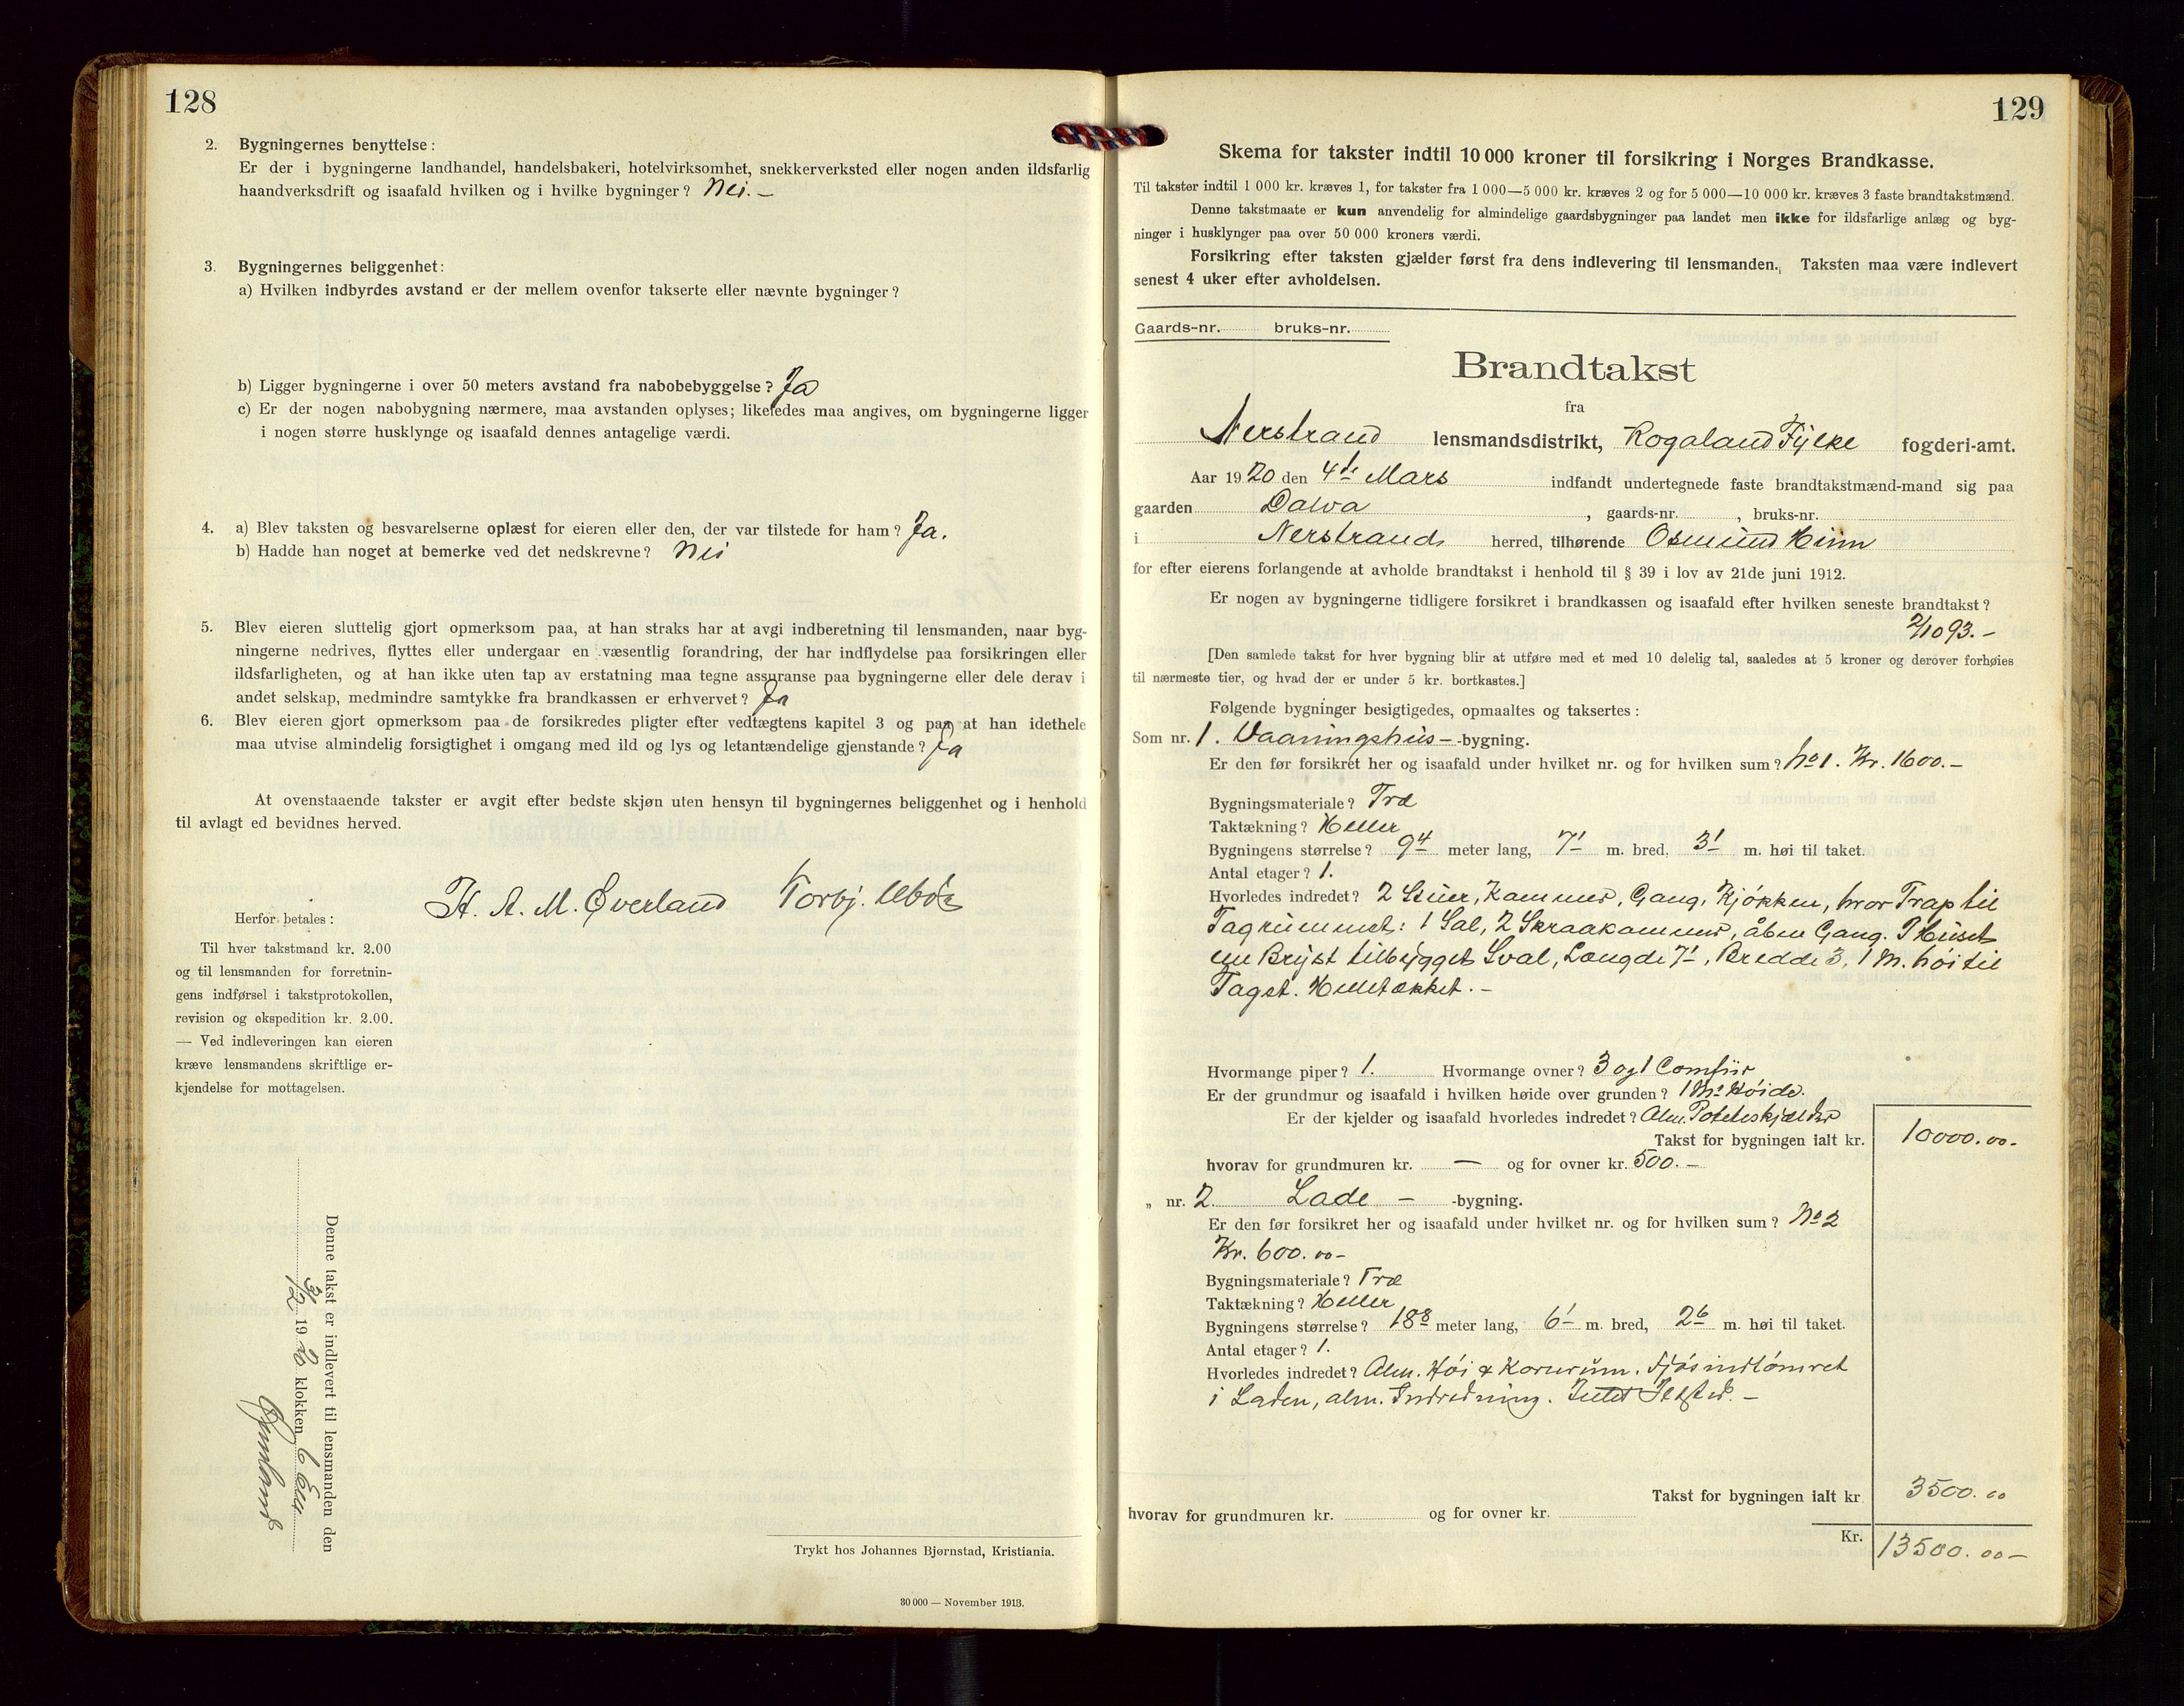 128
2. Bygningernes benyttelse:
Er der i bygningerne landhandel, handelsbakeri, hotelvirksomhet, snekkerverksted eller nogen anden ildsfarlig
haandverksdrift og isaafald hvilken og i hvilke bygninger? Nei. –
3. Bygningernes beliggenhet:
a) Hvilken indbyrdes avstand er der mellem ovenfor takserte eller nævnte bygninger?
b) Ligger bygningerne i over 50 meters avstand fra nabobebyggelse? Ja
c) Er der nogen nabobygning nærmere, maa avstanden oplyses; likeledes maa angives, om bygningerne ligger
i nogen større husklynge og isaafald dennes antagelige værdi.
4. a) Blev taksten og besvarelserne oplæst for eieren eller den, der var tilstede for ham? Ja.
b) Hadde han noget at bemerke ved det nedskrevne? Nei
5. Blev eieren sluttelig gjort opmerksom paa, at han straks har at avgi indberetning til lensmanden, naar byg-
ningerne nedrives, flyttes eller undergaar en væsentlig forandring, der har indflydelse paa forsikringen eller
ildsfarligheten, og at han ikke uten tap av erstatning maa tegne assuranse paa bygningerne eller dele derav i
andet selskap, medmindre samtykke fra brandkassen er erhvervet? Ja
6. Blev eieren gjort opmerksom paa de forsikredes pligter efter vedtægtens kapitel 3 og paa at han idethele
maa utvise almindelig forsigtighet i omgang med ild og lys og letantændelige gjenstande? Ja
At ovenstaaende takster er avgit efter bedste skjøn uten hensyn til bygningernes beliggenhet og i henhold
til avlagt ed bevidnes herved.
H. A. M. Øverland Torbj.
Herfor betales:
Til hver takstmand kr. 2.00
og til lensmanden for forretnin-
gens indførsel i takstprotokollen,
revision og ekspedition kr. 2.00.
— Ved indleveringen kan eieren
kræve lensmandens skriftlige er-
kjendelse for mottagelsen.
Denne takst er indlevert til lensmanden den
3/12 1920 klokken 6 Em
Trykt hos Johannes Bjørnstad, Kristiania.
30 000 — November 1913.
129
Skema for takster indtil 10 000 kroner til forsikring i Norges Brandkasse.
Til takster indtil 1 000 kr. kræves 1, for takster fra 1 000—5 000 kr. kræves 2 og for 5 000—10 000 kr. kræves 3 faste brandtakstmænd.
Denne takstmaate er kun anvendelig for almindelige gaardsbygninger paa landet men ikke for ildsfarlige anlæg og byg-
ninger i husklynger paa over 50 000 kroners værdi.
Forsikring efter taksten gjælder først fra dens indlevering til lensmanden. Taksten maa være indlevert
senest 4 uker efter avholdelsen.
Gaards-nr. bruks-nr.
Brandtakst
fra
Nerstrand lensmandsdistrikt, Rogaland Fylke fogderi-amt.
Aar 1920 den 4de Mars indfandt undertegnede faste brandtakstmænd-mand sig paa
gaarden Dalva, gaards-nr. , bruks-nr.
i Nerstrands herred, tilhørende Osmund
for efter eierens forlangende at avholde brandtakst i henhold til § 39 i lov av 21de juni 1912.
Er nogen av bygningerne tidligere forsikret i brandkassen og isaafald efter hvilken seneste brandtakst?
2/10 93. –
[Den samlede takst for hver bygning blir at utføre med et med 10 delelig tal, saaledes at 5 kroner og derover forhøies
til nærmeste tier, og hvad der er under 5 kr. bortkastes.]
Følgende bygninger besigtigedes, opmaaltes og taksertes:
Som nr. 1. Vaaningshus – -bygning.
Er den før forsikret her og isaafald under hvilket nr. og for hvilken sum? No 1. Kr. 1600. –
Bygningsmateriale? Træ
Taktækning? Heller
Bygningens størrelse? 9 4 meter lang, 7 1 m. bred, 3 1 m. høi til taket.
Antal etager? 1.
Hvorledes indredet? 2 Stuer, Kammer, Gang, Kjøkken, hvor Trap til
Tagrummet: 1 Sal, 2 Skraakammer, åben Gang. I Huset
en Bryst tilbygget Sval, Længde 7 1, Bredde 3, 1 M. høi til
Taget. Helletækket. –
Hvormange piper? 1. Hvormange ovner? 3 og 1 Comfur
Er der grundmur og isaafald i hvilken høide over grunden? 1 Ms Høide.
Er der kjelder og isaafald hvorledes indredet? Alm. Poteteskjælder
Takst for bygningen ialt kr. 10000.00-
hvorav for grundmuren kr. — og for ovner kr. 500. –
„ nr. 2. Lade – -bygning.
Er den før forsikret her og isaafald under hvilket nr. og for hvilken sum? No 2
Kr. 600.00 –
Bygningsmateriale? Træ
Taktækning? Heller
Bygningens størrelse? 18 8 meter lang, 6 1 m. bred, 2 6 m. høi til taket.
Antal etager? 1.
Hvorledes indredet? Alm. Høi & Kornrum. Fjøs indtømret
i Laden, alm. Indredning. Intet Ildsted. –
Takst for bygningen ialt kr. 3500.00
hvorav for grundmuren kr. og for ovner kr.
Kr. 13500.00 –